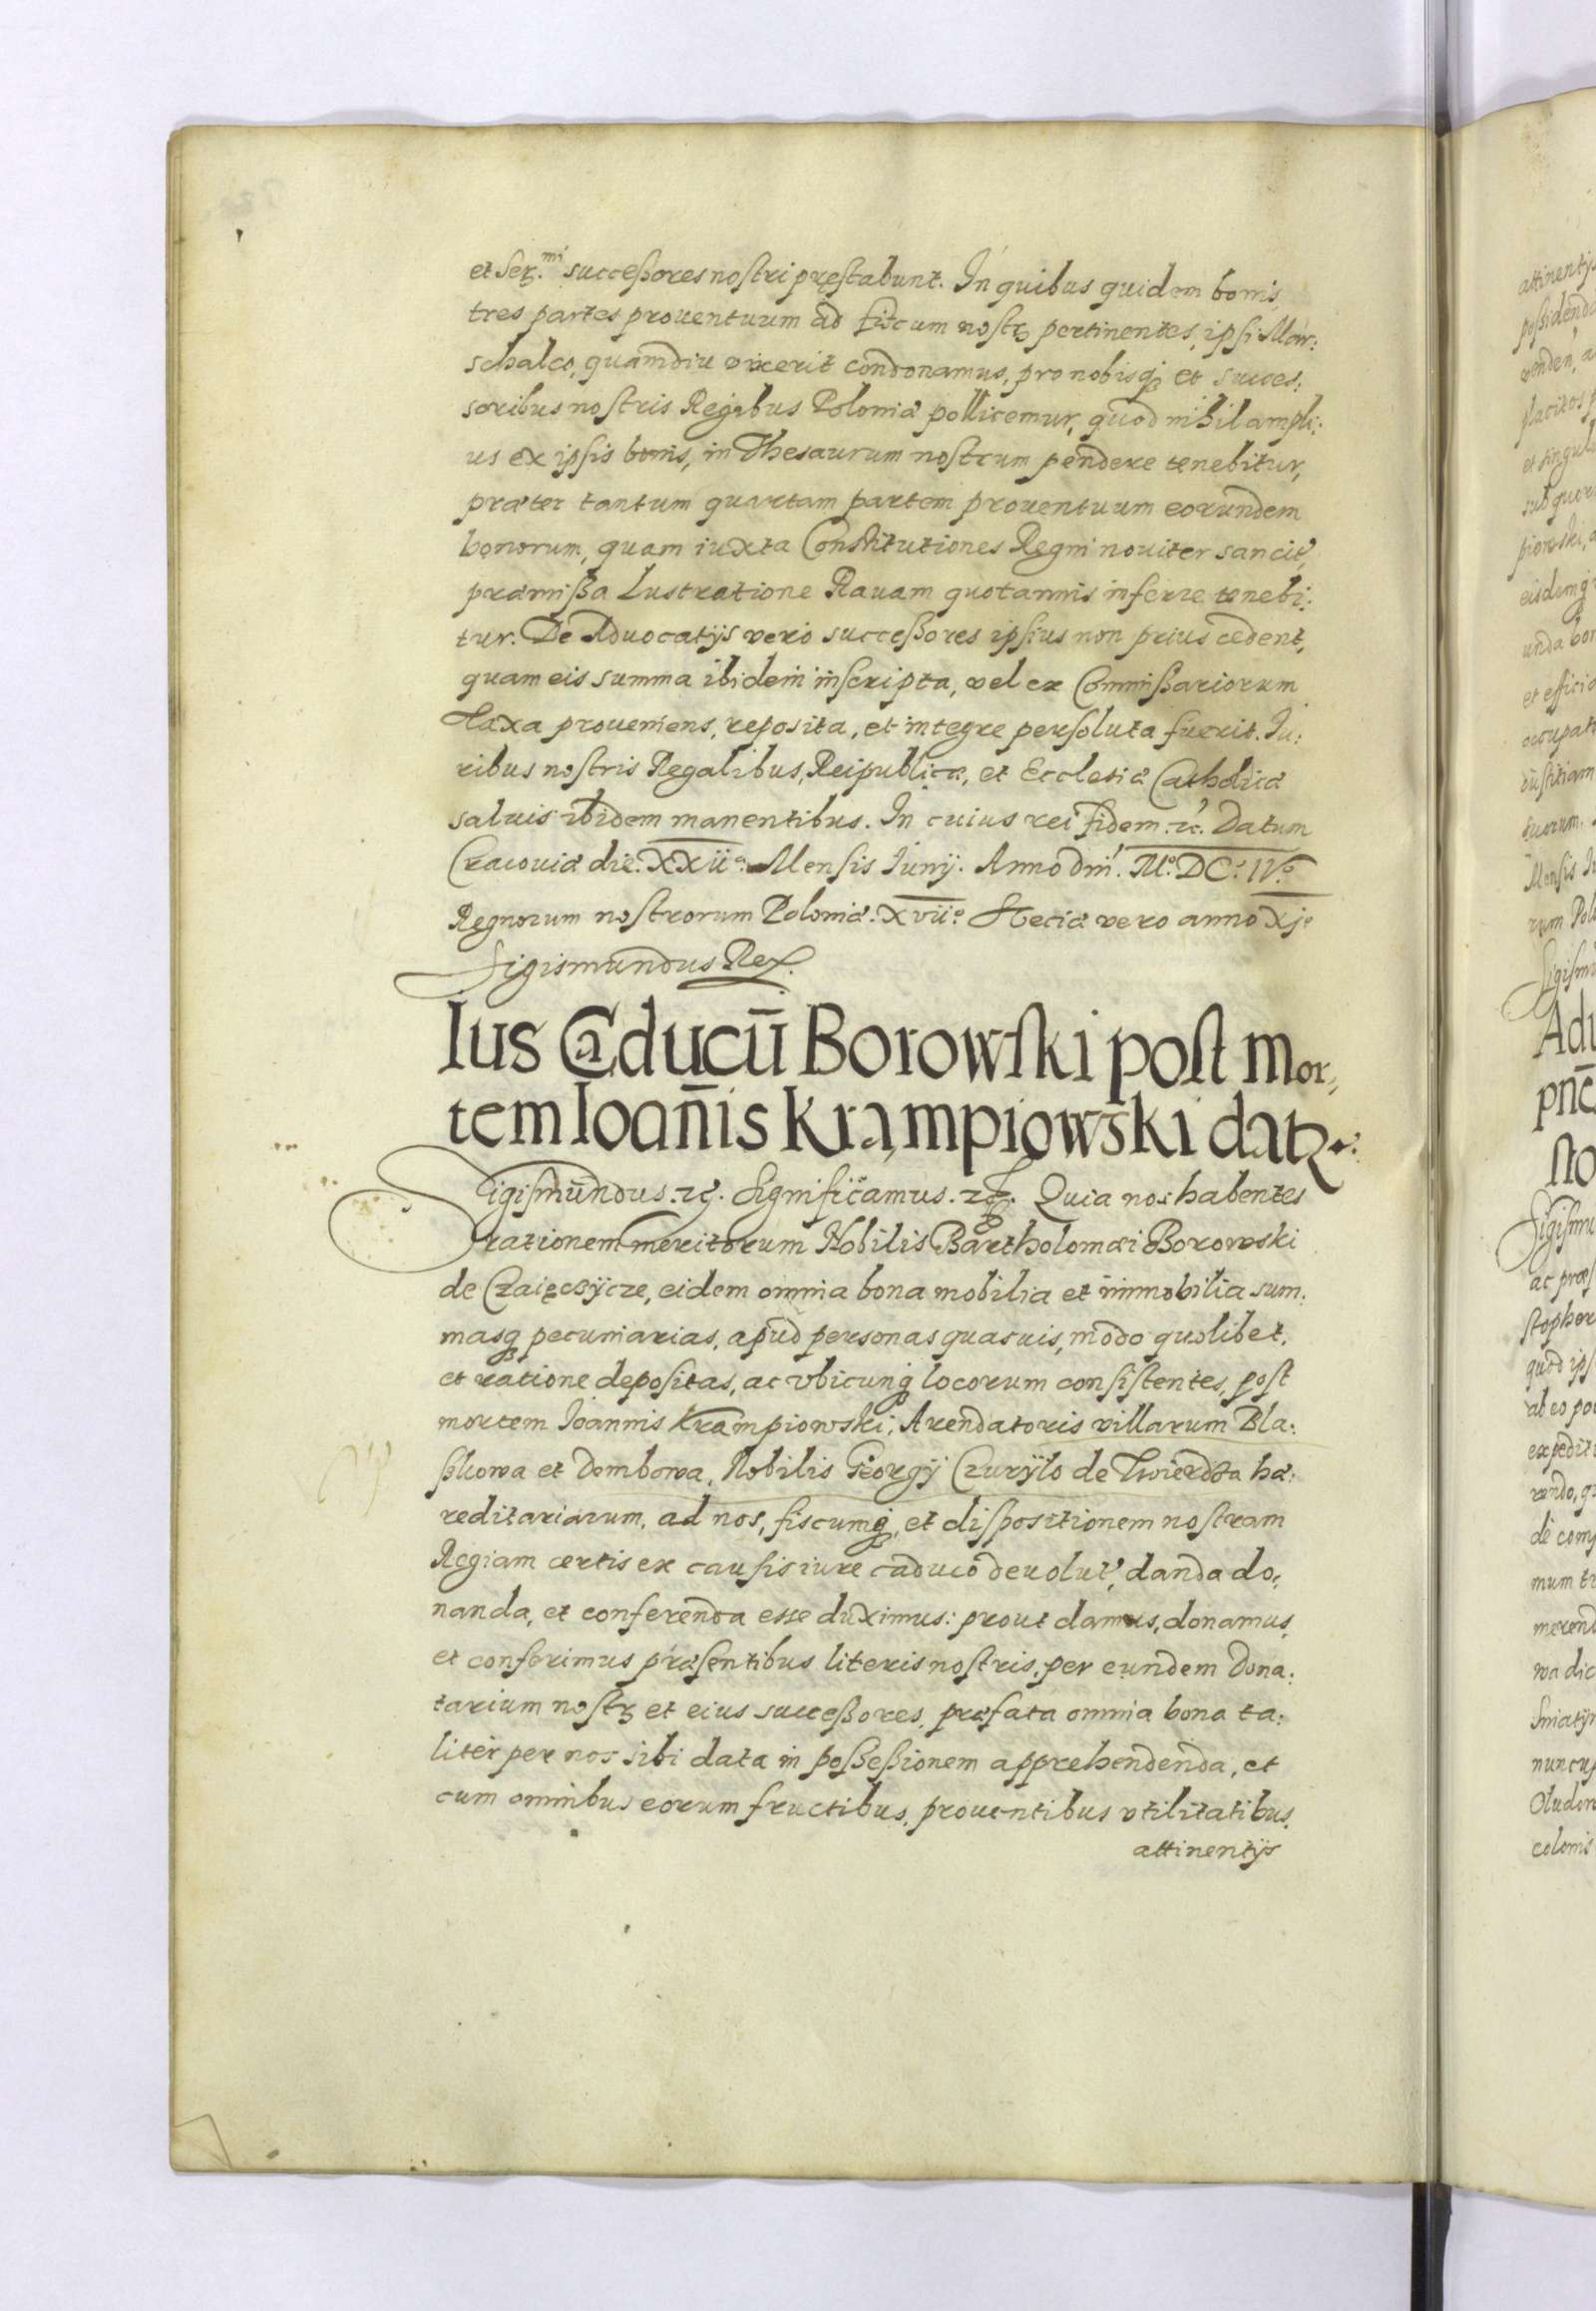 et Ser.mi successores nostri pręstabunt. In quibus quidem bonis
tres partes prouentuum ad fiscum nostrꝫ pertinentes, ipsi Mar:
schalco, quamdiu vixerit condonamus, pro nobisqꝫ et succes:
soribus nostris Regibus Poloniæ pollicemur, quod nihil ampli:
us ex ipsis bonis, in Thesaurum nostrum pendere tenebitur,
præter tantum quartam partem prouentuum eorundem
bonorum, quam iuxta Constitutiones Regni nouiter sancit',
præmissa Lustratione Rauam quotannis inferre tenebi:
tur. De Aduocatijs vero successores ipsius non prius cedent,
quam eis summa ibidem inscripta, vel ex Commissariorum
Taxa proueniens, reposita, et integre persoluta fuerit. Iu:
ribus nostris Regalibus, Reipublicæ, et Ecclesiæ Catholicæ
saluis ibidem manentibus. In cuius rei fidem. ꝛc. Datum
Cracouiæ die. XXIIa. Mensis Iunij. Anno dni'. Mo. DCo. IVo.
Regnorum nostrorum Poloniæ. XVIIo. Sueciæ vero anno XIo
Sigismundus Rex.
Ius Caducū Borowski post Mor,,
tem Ioan̄is Krampiowski datꝫ.
Sigismundus. ꝛc. Significamus. ꝛc. Quia nos habentes
rationem meritorum Nobilis Bartholomæi Borowski
de , eidem omnia bona mobilia et immobilia sum:
masqꝫ pecuniarias, apud personas quasuis, modo quolibet,
et ratione depositas, ac vbicunqꝫ locorum consistentes, post
mortem Ioannis Krampiowski, Arendatoris villarum Bla:
szkowa et Dombowa, Nobilis Georgij Czuryło de Twierdza hæ:
reditariarum, ad nos, fiscumqꝫ, et dispositionem nostram
Regiam certis ex causis iure caduco deuolut', danda do,
nanda, et conferenda esse duximus: prout damus, donamus,
et conferimus præsentibus literis nostris, per eundem Dona:
tarium nostrꝫ et eius successores, præfata omnia bona ta:
liter per nos sibi data in possessionem apprehendenda, et
cum omnibus eorum fructibus, prouentibus vtilitatibus,
attinentijs